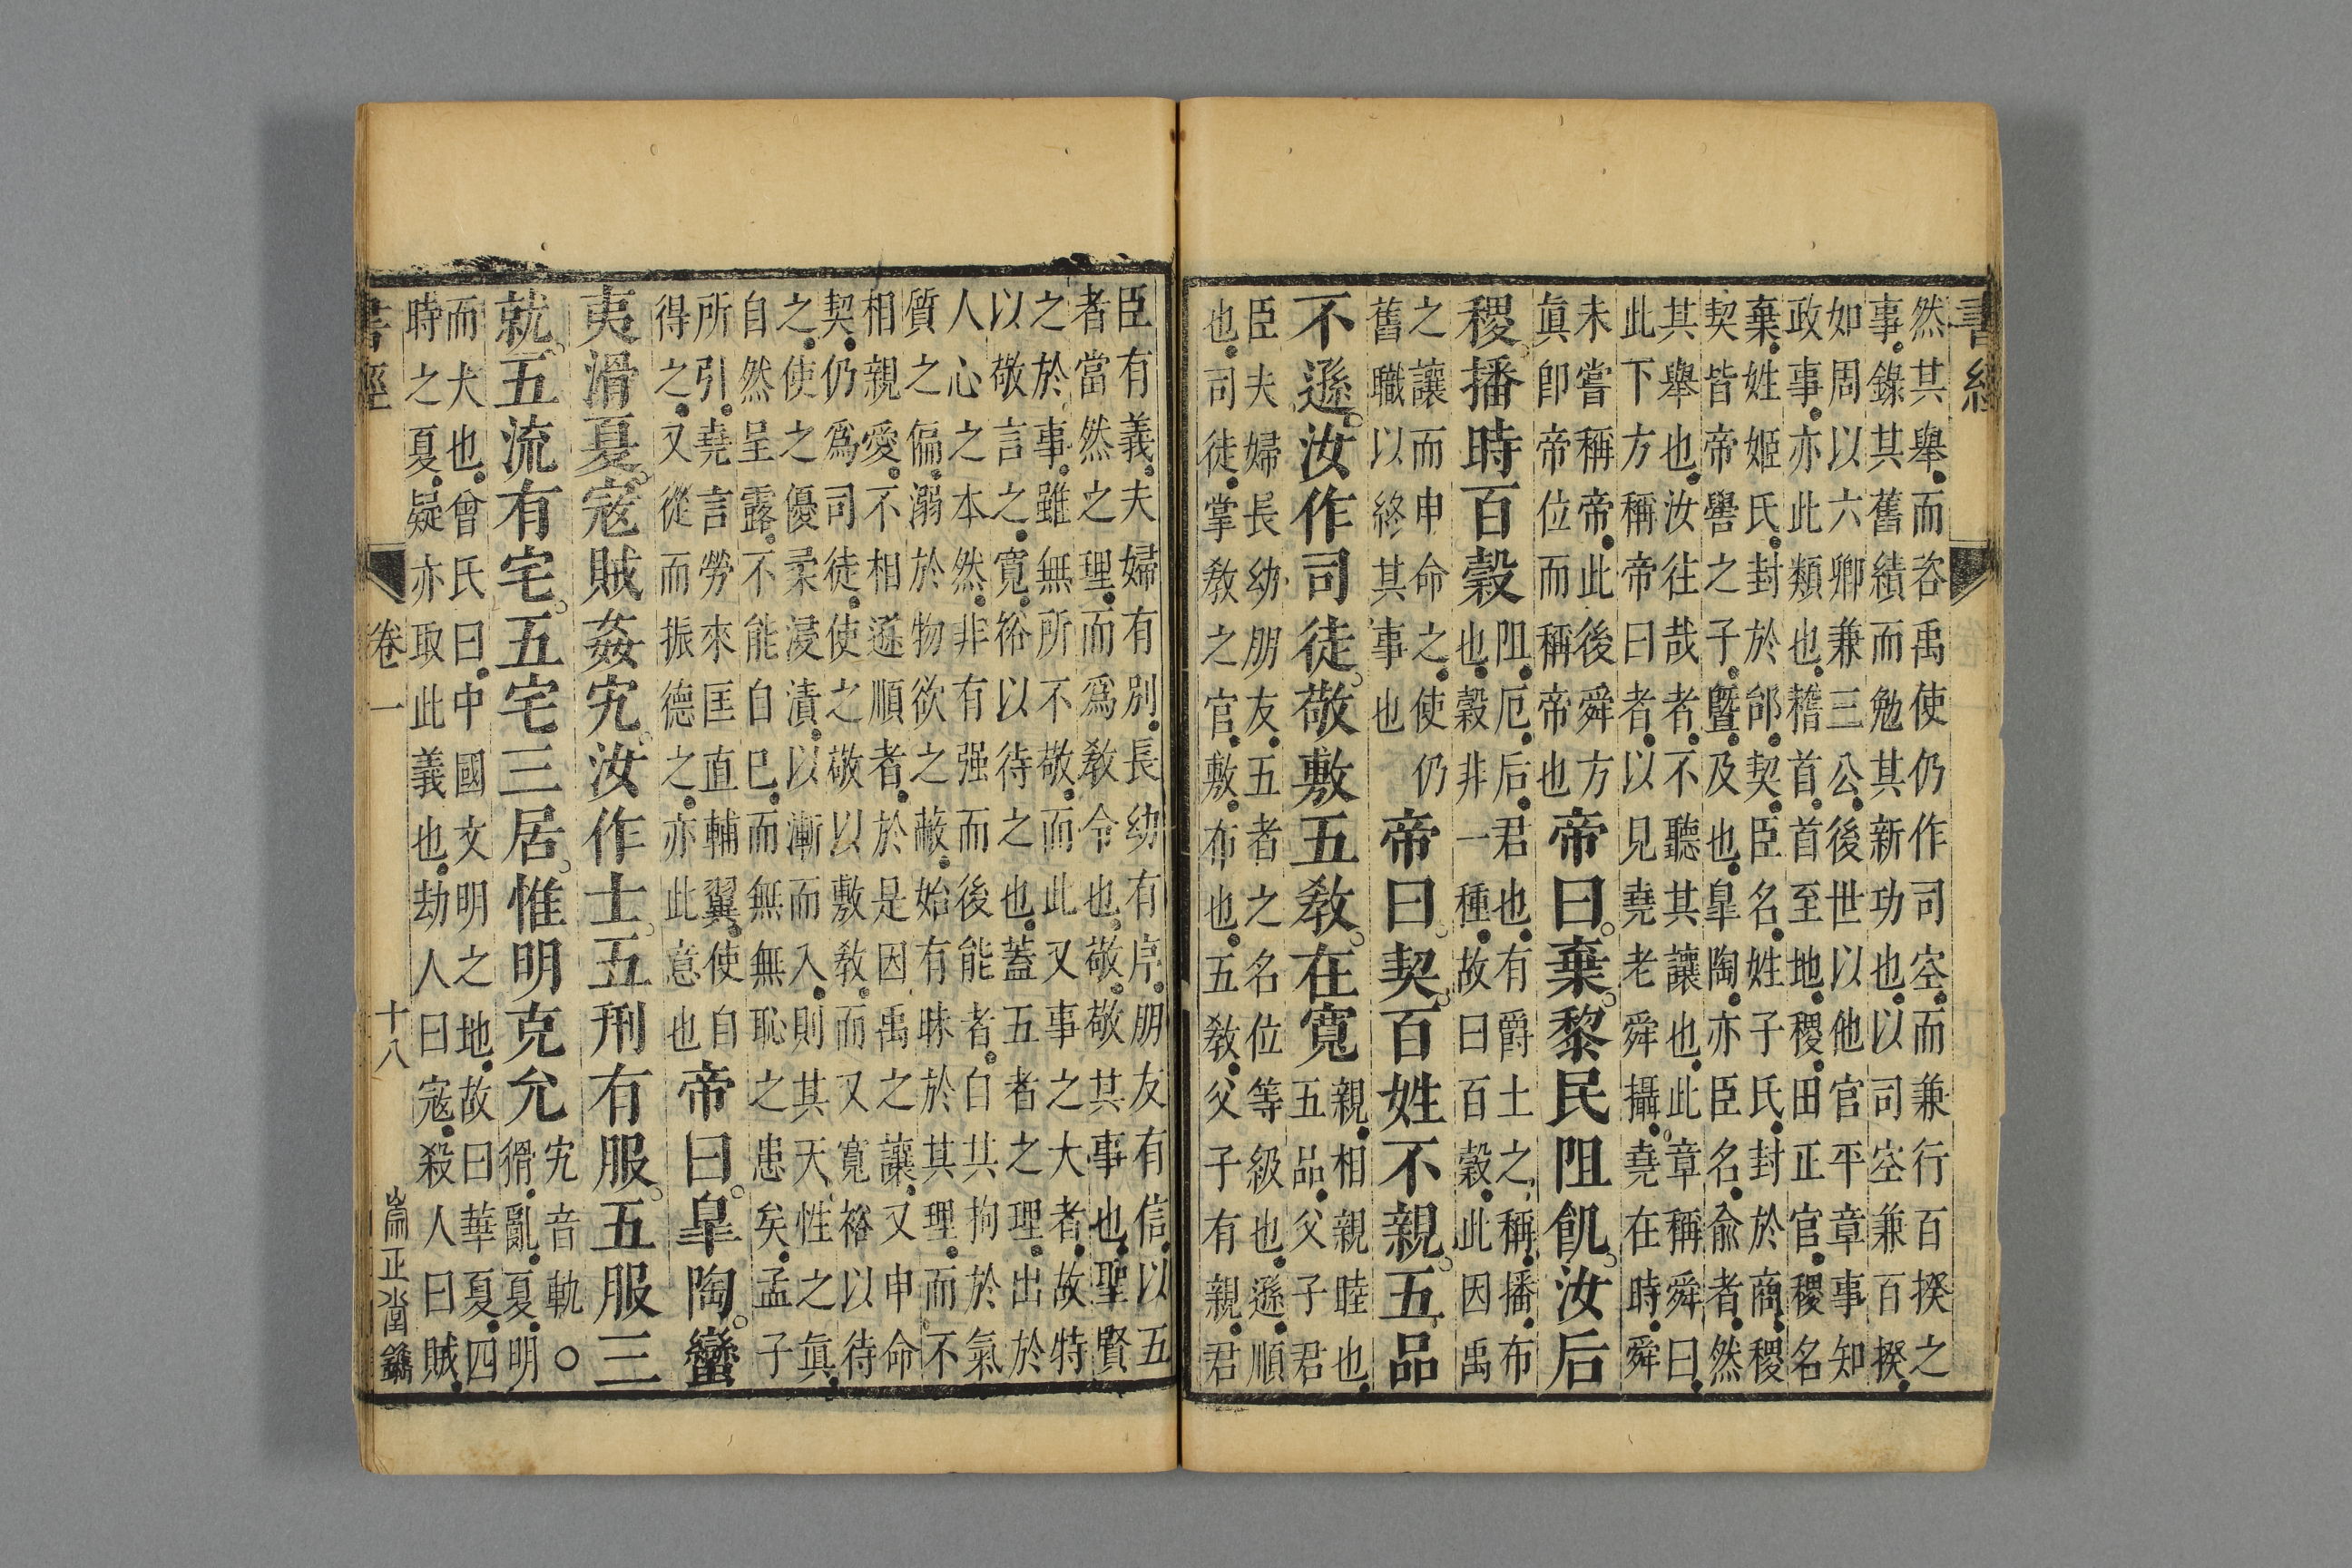 書經
然其舉而咨禹使仍作司空而兼行百揆之
事錄其舊績而勉其新功也以司空兼百揆
如周以六卿兼三公後世以他官平章事知
政事亦此類也稽首首至地稷田正官稷名
棄姓姬氏封於邰契臣名姓子氏封於商稷
契皆帝嚳之子曁及也皐陶亦臣名兪者然
其舉也汝往哉者不聽其讓也此章稱舜曰
此下方稱帝曰者以見堯老舜攝堯在時舜
未嘗稱帝此後舜方
眞卽帝位而稱帝也
帝曰棄黎民阻飢汝后
稷播時百穀
阻厄后君也有爵土之稱播布
也穀非一種故曰百穀此因禹
之讓而申命之使仍
舊職以終其事也
帝曰契百姓不親五品
不遜汝作司徒敬敷五敎在寬
親相親睦也
五品父子君
臣夫婦長幼朋友五者之名位等級也遜順
也司徒掌敎之官敷布也五敎父子有親君
臣有義夫婦有別長幼有序朋友有信以五
者當然之理而爲敎令也敬敬其事也聖賢
之於事雖無所不敬而此又事之大者故特
以敬言之寬裕以待之也蓋五者之理出於
人心之本然非有强而後能者自其拘於氣
質之偏溺於物欲之蔽始有昧於其理而不
相親愛不相遜順者於是因禹之讓又申命
契仍爲司徒使之敬以敷敎而又寬裕以待
之使之優柔浸漬以漸而入則其天性之眞
自然呈露不能自已而無無恥之患矣孟子
所引堯言勞來匡直輔翼使自
得之又從而振德之亦此意也
帝曰皐陶蠻
夷滑夏寇賊姦宄汝作士五刑有服五服三
就五流有宅五宅三居惟明克允
宄音軌○
猾亂夏明
而犬也曾氏曰中國文明之地故曰華夏四
時之夏疑亦取此義也劫人曰寇殺人曰賊
書經 卷一 十八 崇正堂鐫